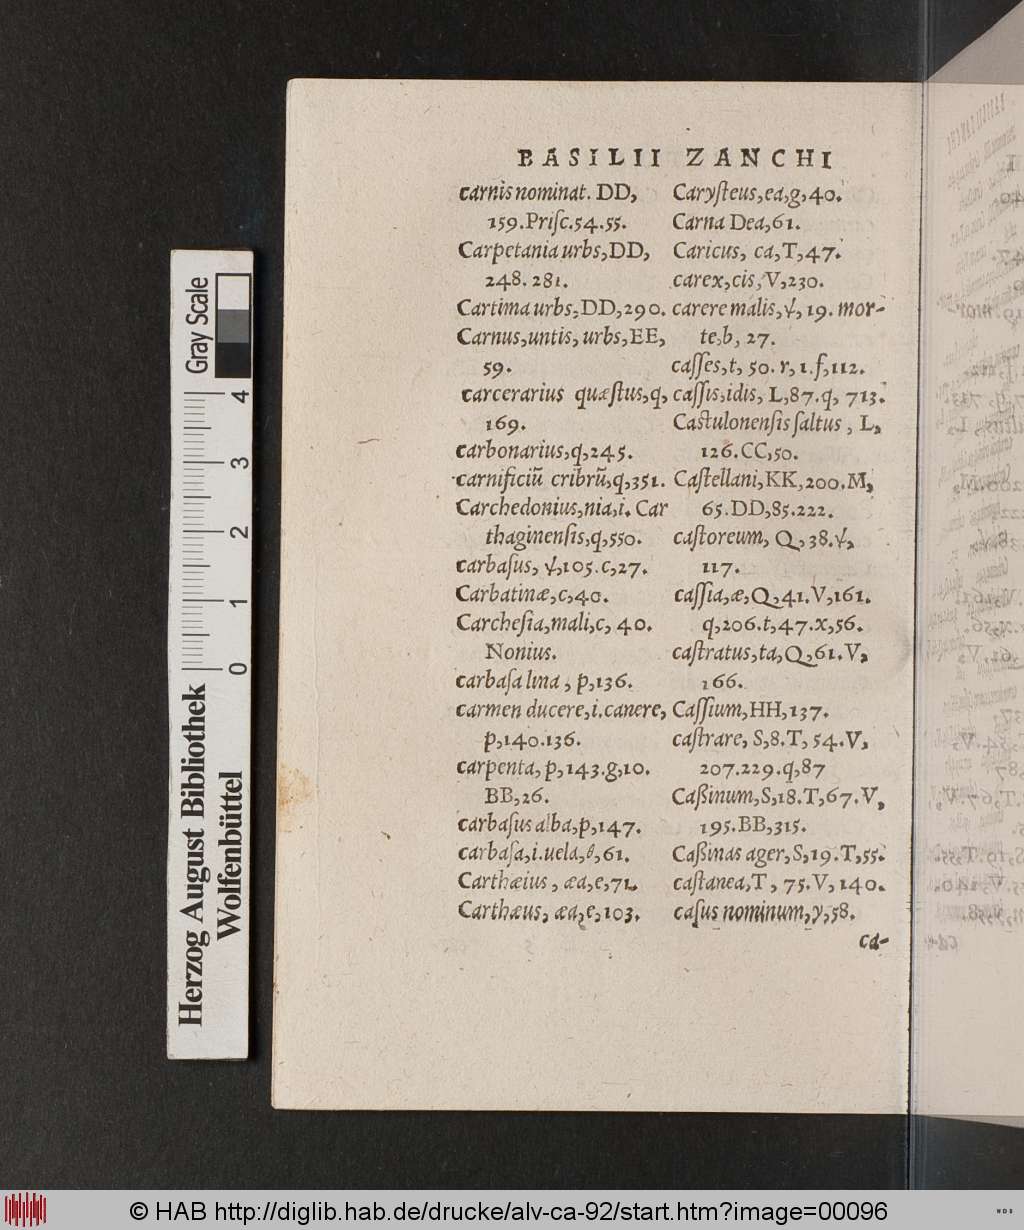 BASILII ZANCHI
carnis nominat. DD,
159.Priſc.54.55.
Carpetania urbs,DD,
248.281.
Cartima urbs,DD,290.
Carnus,untis, urbs,EE,
59.
carcerarius quæſtus,q,
169.
carbonarius,q,245.
carnificiũ cribrũ,q,351.
Carchedonius,nia,i. Car
thaginenſis,q,550.
carbaſus, ψ,105.c,27.
Carbatinæ,c,40.
Carcheſia,mali,c, 40.
Nonius.
carbaſa lina, p,136.
carmen ducere,i.canere,
p,140.136.
carpenta,p,143.g,10.
BB,26.
carbaſus alba,p,147.
carbaſa,i.uela,θ,61.
Carthæius, æa,e,71.
Carthæus, æa,e,103.
Caryſteus,ea,g,40.
Carna Dea,61.
Caricus, ca,T,47.
carex,cis,V,230.
carere malis,ψ, 19. mor-
te,b, 27.
caſſes,t, 50. r, 1.f,112.
caſſis,idis, L,87.q, 713.
Caſtulonenſis ſaltus, L,
126.CC,50.
Caſtellani,KK,200.M,
65.DD,85.222.
caſtoreum, Q,38.ψ,
117.
caſſia,æ,Q,41.V,161.
q,206.t,47.x,56.
caſtratus,ta,Q,61.V,
166.
Caſſium,HH,137.
caſtrare, S,8.T, 54.V,
207.229.q,87
Caßinum,S,18.T,67.V,
195.BB,315.
Caßinas ager,S,19.T,55.
caſtanea,T, 75.V,140.
caſus nominum,y,58.
ca-
Gray Scale
0 1 2 3 4
Herzog August Bibliothek
Wolfenbüttel
© HAB http://diglib.hab.de/drucke/alv-ca-92/start.htm?image=00096